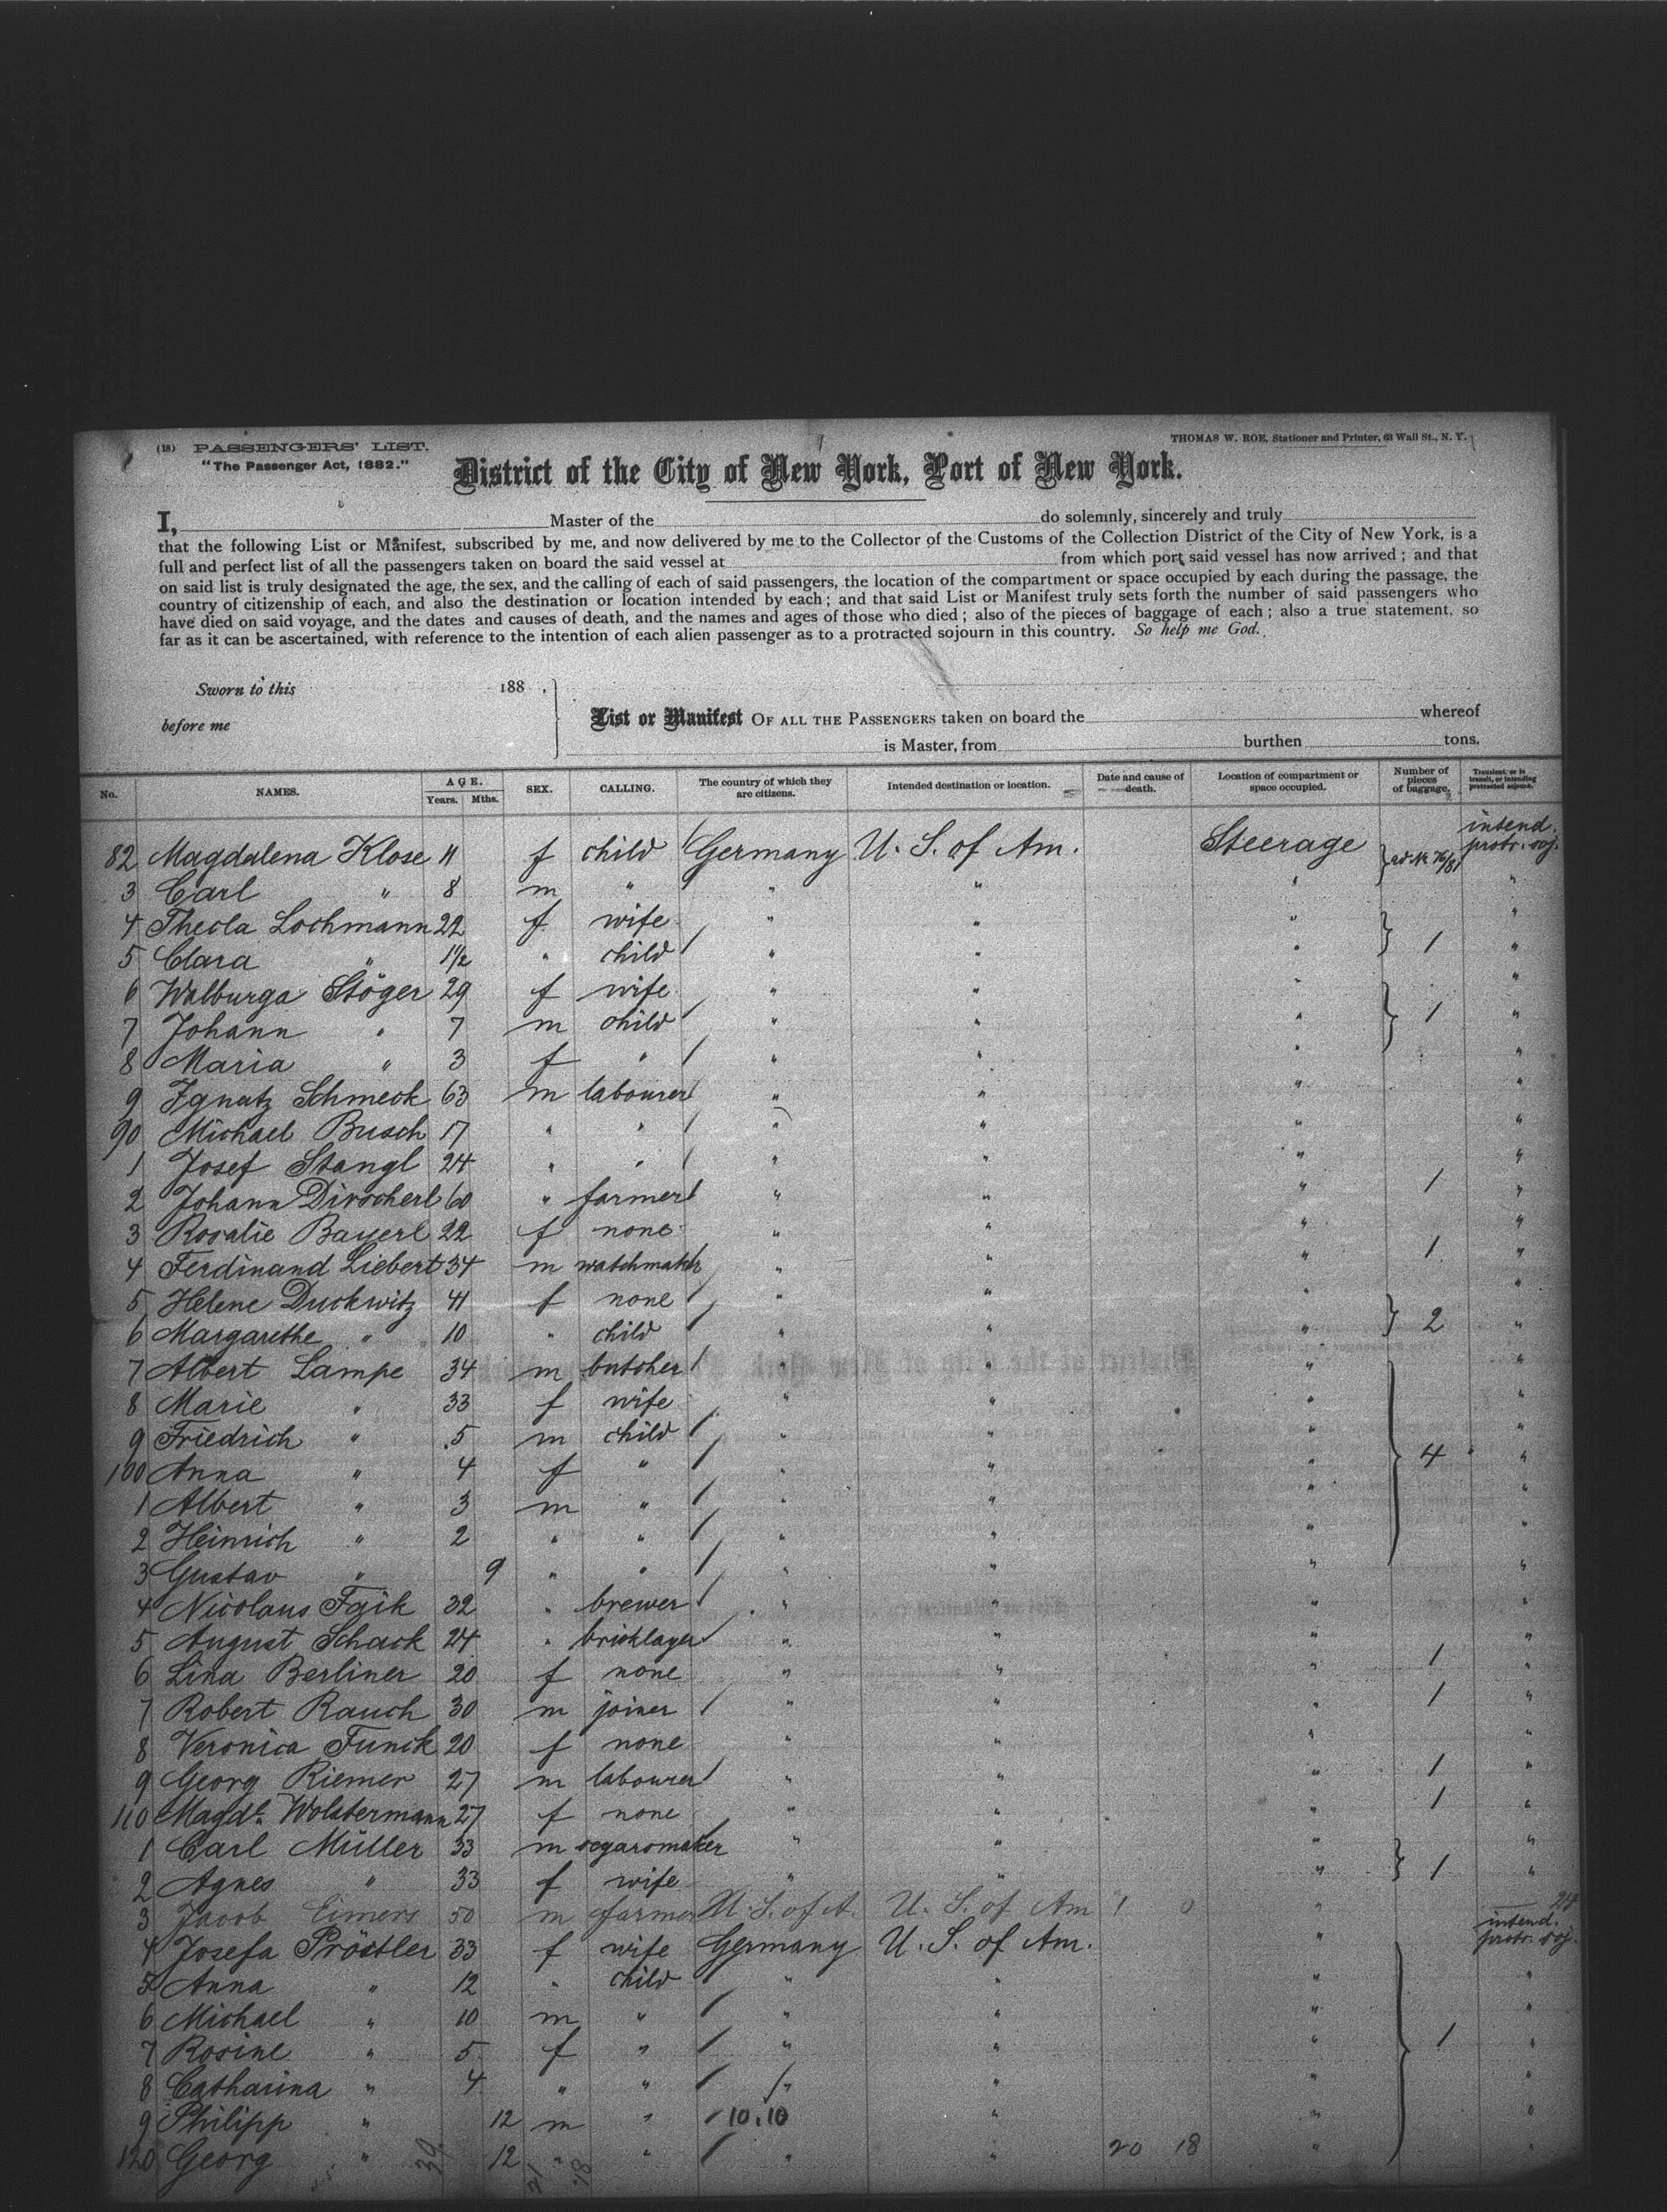 (18) PASSENGERS' LIST.
THOMAS W. ROE, Stationer and Printer, 63 Wall St., N. Y.
"The Passenger Act, 1882."
District of the City of New York, Port of New York.
I, Master of the do solemnly, sincerely and truly
that the following List or Manifest, subscribed by me, and now delivered by me to the Collector of the Customs of the Collection District of the City of New York, is a
full and perfect list of all the passengers taken on board the said vessel at from which port said vessel has now arrived; and that
on said list is truly designated the age, the sex, and the calling of each of said passengers, the location of the compartment or space occupied by each during the passage, the
country of citizenship of each, and also the destination or location intended by each; and that said List or Manifest truly sets forth the number of said passengers who
have died on said voyage, and the dates and causes of death, and the names and ages of those who died; also of the pieces of baggage of each; also a true statement, so
far as it can be ascertained, with reference to the intention of each alien passenger as to a protracted sojourn in this country. So help me God.
Sworn to this 188 .
before me
List or Manifest OF ALL THE PASSENGERS taken on board the whereof
is Master, from burthen tons.
No. NAMES. AGE. Years. Mths. SEX. CALLING. The country of which they are citizens. Intended destination or location. Date and cause of death. Location of compartment or space occupied. Number of pieces of baggage. Transient, or in transit, or intending protracted sojourn.
82 Magdalena Klose 11 f child Germany U. S. of Am. Steerage intend. protr. soj.
3 Carl " 8 m " " " " "
4 Thecla Lochmann 22 f wife " " " "
5 Clara " 1½ " child " " " 1 "
6 Walburga Stöger 29 f wife " " " "
7 Johann " 7 m child " " " 1 "
8 Maria " 3 f " " " " "
9 Ignatz Schmeck 63 m labourer " " " "
90 Michael Busch 17 " " " " " "
1 Josef Stangl 24 " " " " " "
2 Johann Dirscherl 60 " farmer " " " 1 "
3 Rosalie Bayerl 22 f none " " " "
4 Ferdinand Liebert 34 m watchmaker " " " 1 "
5 Helene Duckwitz 41 f none " " " "
6 Margarethe " 10 " child " " " 2 "
7 Albert Lampe 34 m butcher " " " "
8 Marie " 33 f wife " " " "
9 Friedrich " 5 m child " " " "
100 Anna " 4 f " " " " 4 "
1 Albert " 3 m " " " " "
2 Heinrich " 2 " " " " " "
3 Gustav " 9 " " " " " "
4 Nicolaus Faik 32 " brewer " " " "
5 August Schack 24 " bricklayer " " " "
6 Lina Berliner 20 f none " " " 1 "
7 Robert Rauch 30 m joiner " " " 1 "
8 Veronica Funck 20 f none " " " "
9 Georg Riemer 27 m labourer " " " 1 "
110 Magdl. Wolstermann 27 f none " " " 1 "
1 Carl Müller 33 m segarsmaker " " " "
2 Agnes " 33 f wife " " " 1 "
3 Jacob Eimers 50 m farmer U. S. of A. U. S. of Am "
4 Josefa Pröstler 33 f wife Germany U. S. of Am. " intend. protr. soj.
5 Anna " 12 " child " " " "
6 Michael " 10 m " " " " "
7 Rosine " 5 f " " " " 1 "
8 Catharina " 4 " " " " " "
9 Philipp " 12 m " 10.10 " " "
120 Georg " 12 " " " " 20 18 " "